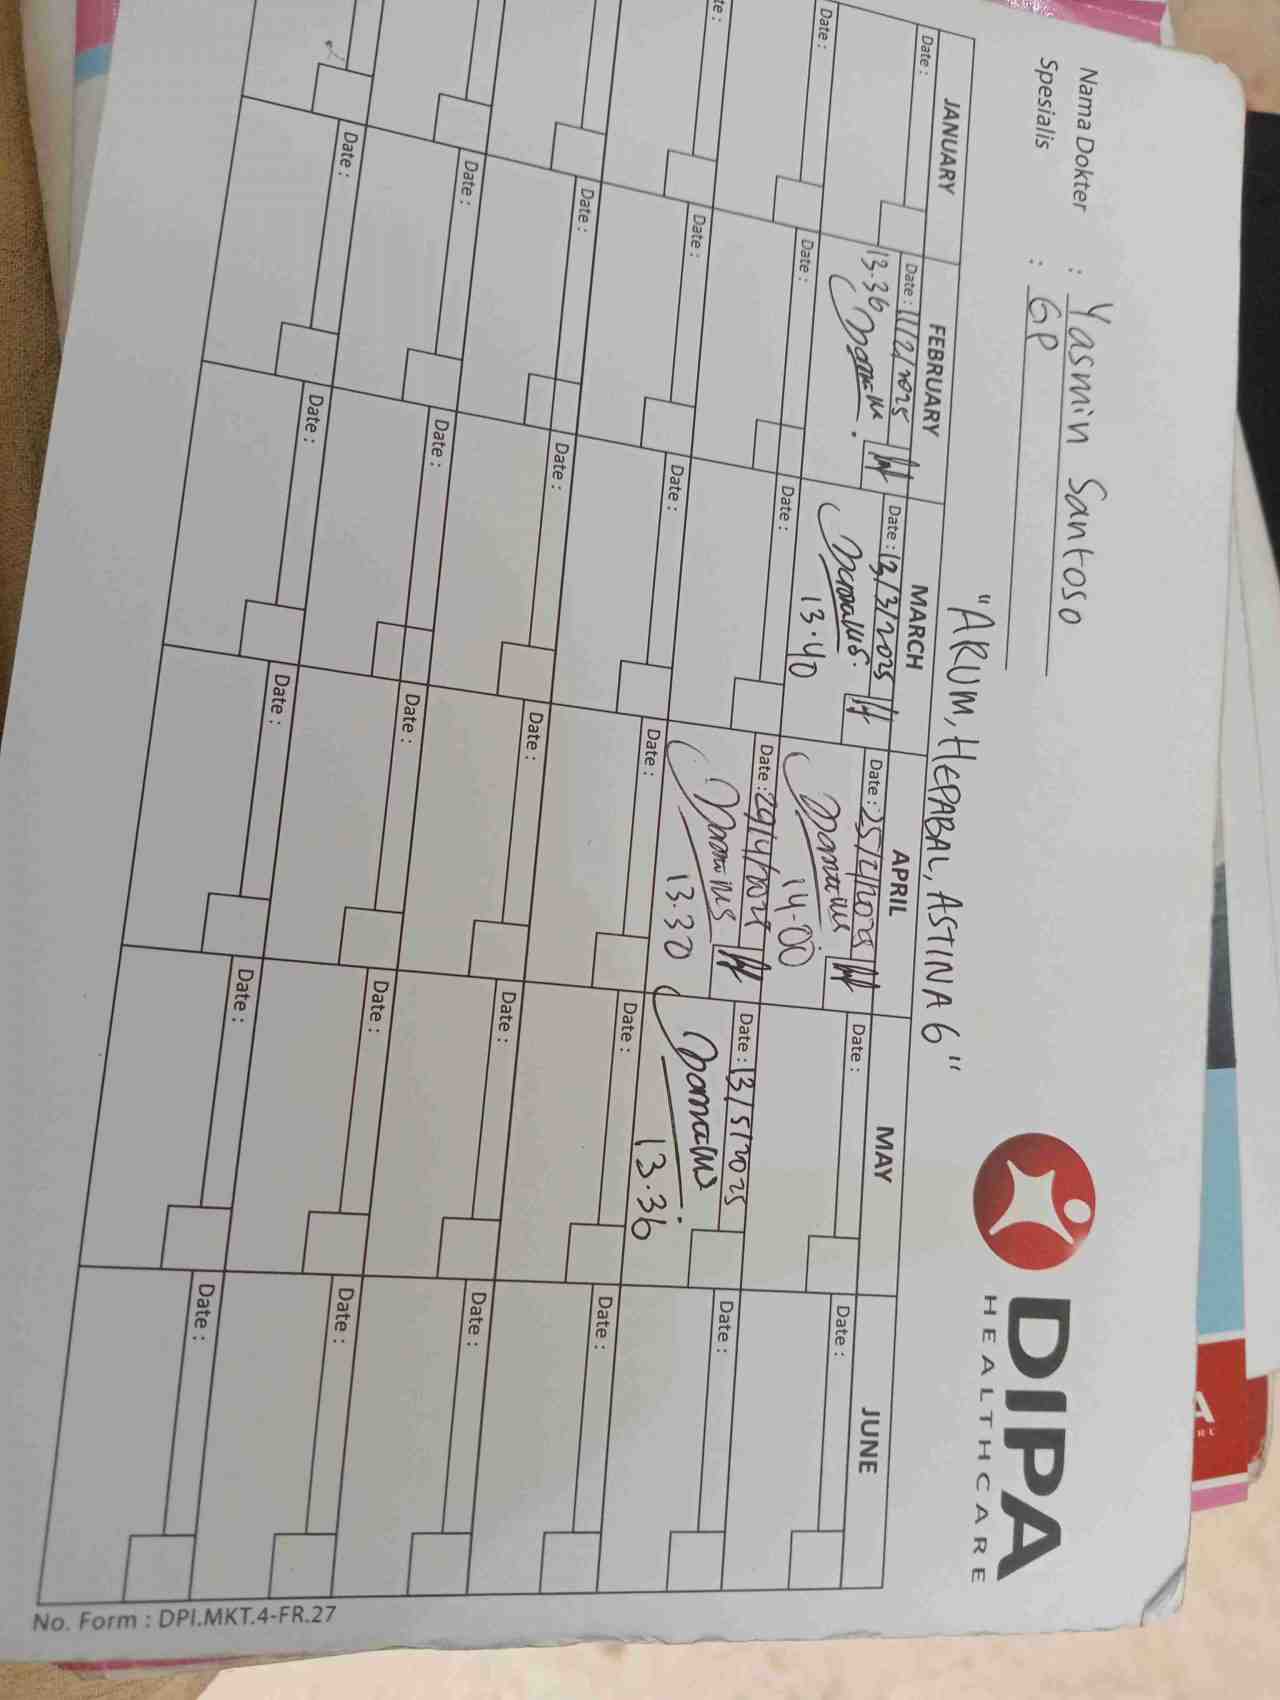 Nama Dokter : Yasmin Santoso
Spesialis : GP
DIPA
HEALTHCARE
"ARUM, HEPABAL, ASTINA 6"
JANUARY FEBRUARY MARCH APRIL MAY JUNE
Date : Date : 11/2/2025 Date : 13/3/2025 Date : Date : Date :
13.36 13.40 14.00
Date : Date : Date : Date : Date : 13/5/2025 Date :
13.30 13.36
te : Date : Date : Date : Date : Date :
Date : Date : Date : Date : Date :
Date : Date : Date : Date : Date :
Date : Date : Date : Date : Date :
No. Form : DPI.MKT.4-FR.27